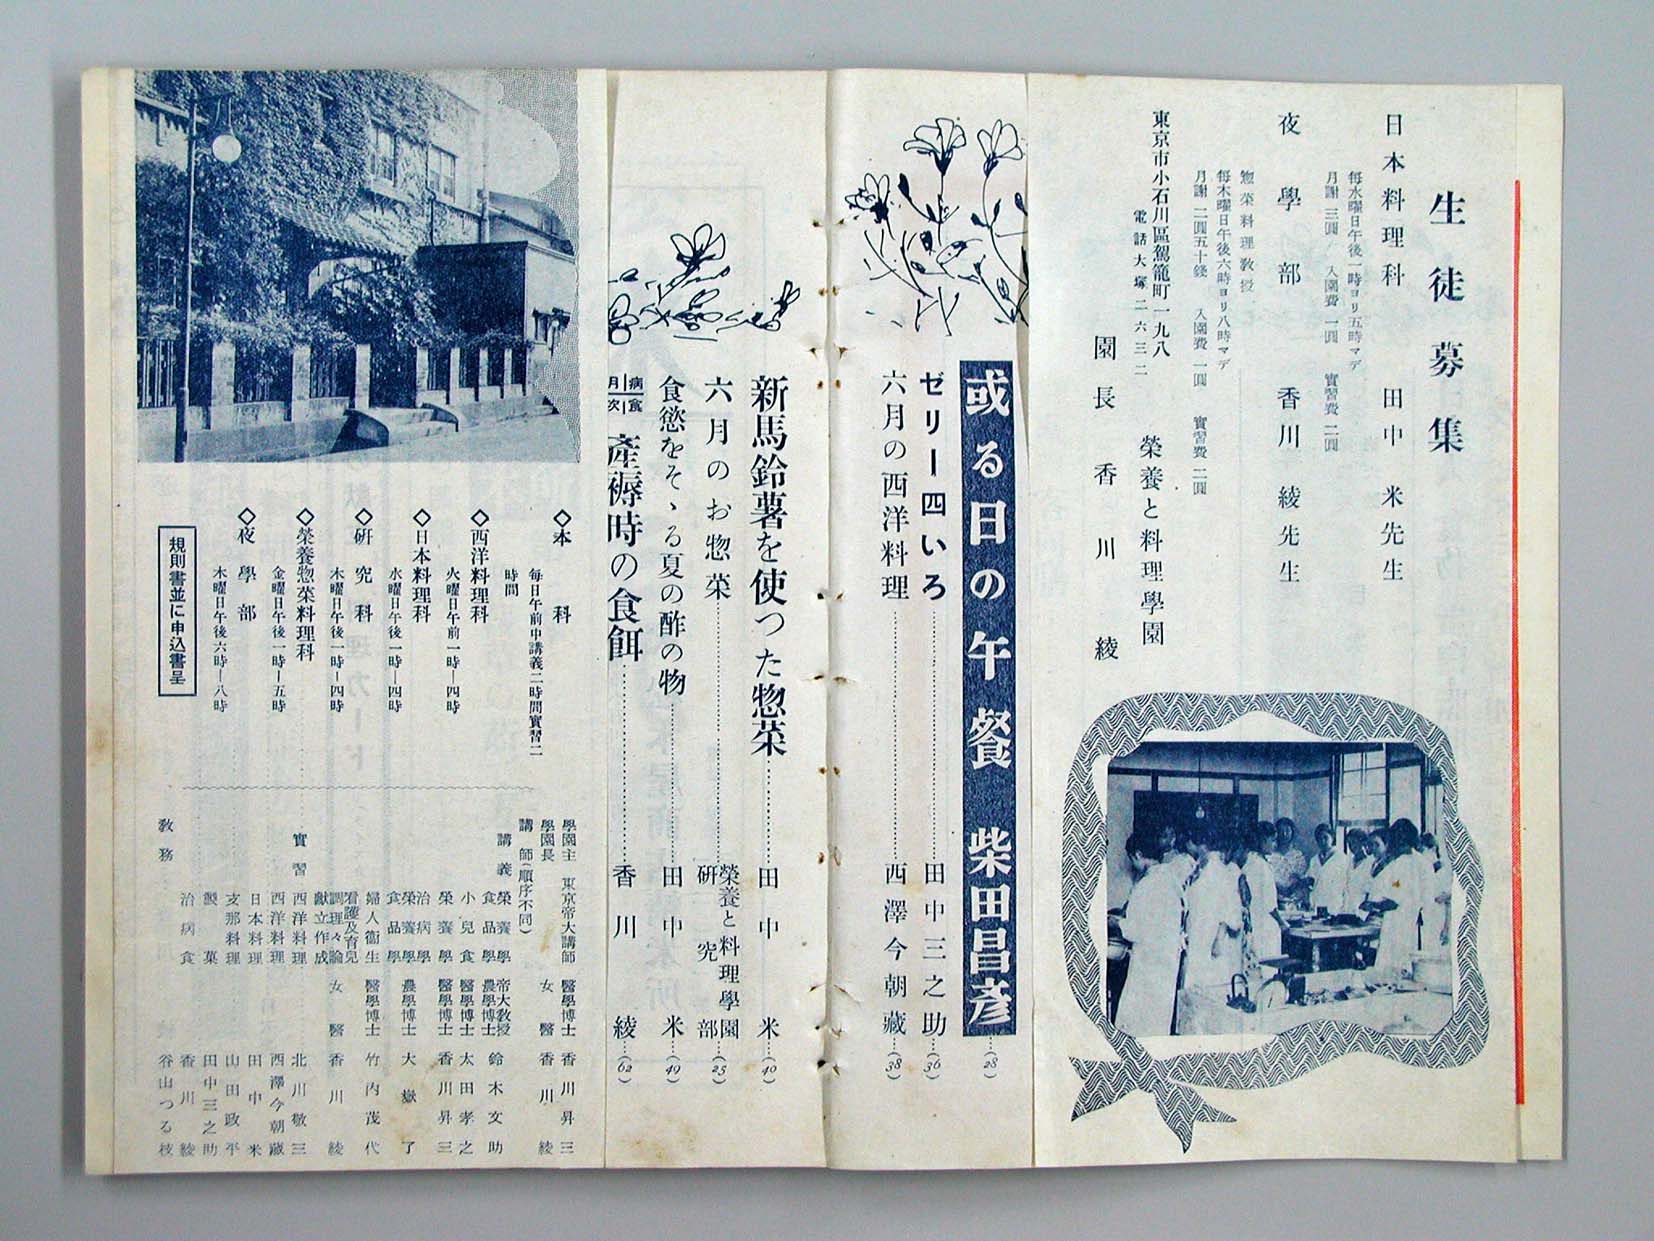 生徒募集
日本料理科　田中　米先生
每水曜日午後一時ヨリ五時マデ
月謝 三圓　入園費 一圓　實習費 二圓
夜學部　香川　綾先生
惣菜料理教授
每木曜日午後六時ヨリ八時マデ
月謝 二圓五十錢　入園費 一圓　實習費 二圓
東京市小石川區駕籠町一九八　榮養と料理學園
電話大塚二六三二
園長　香川　綾
或る日の午餐　柴田昌彥…(28)
ゼリー四いろ…田中三之助…(36)
六月の西洋料理…西澤今朝藏…(38)
新馬鈴薯を使つた惣菜…田中　米…(40)
六月のお惣菜…榮養と料理學園研究部…(25)
食慾をそゝる夏の酢の物…田中　米…(49)
病食月次　產褥時の食餌…香川　綾…(62)
◇本科
每日午前中講義二時間實習二時間
◇西洋料理科
火曜日午前一時―四時
◇日本料理科
水曜日午後一時―四時
◇硏究科
木曜日午後一時―四時
◇榮養惣菜料理科
金曜日午後一時―五時
◇夜學部
木曜日午後六時―八時
規則書並に申込書呈
學園主　東京帝大講師　醫學博士　香川昇三
學園長　女醫　香川　綾
講師(順序不同)
講義　榮養學　食品學　帝大敎授　農學博士　鈴木文助
小兒食　醫學博士　太田孝之
榮養學　醫學博士　香川昇三
治病學
榮養學　食品學　農學博士　大嶽　了
婦人衞生　醫學博士　竹內茂代
看護及育兒
調理々論　女醫　香川　綾
獻立作成
實習　西洋料理　北川敬三
西洋料理　西澤今朝藏
日本料理　田中　米
支那料理　山田政平
製菓　田中三之助
治病食　香川　綾
敎務　谷山つる枝